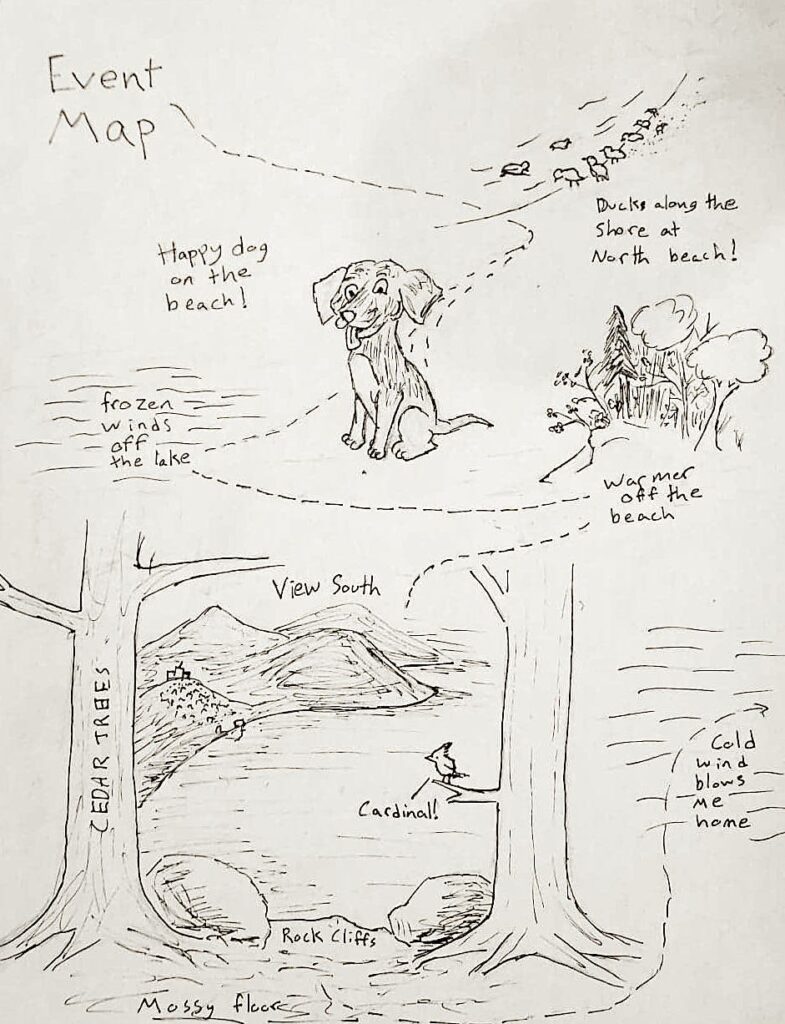 Event
Map
Ducks along the
Shore at
North beach!
Happy dog
on the
beach!
frozen
winds
off
the lake
Warmer
off the
beach
View South
CEDAR TREES
Cardinal!
Cold
wind
blows
me
home
Rock Cliffs
Mossy floor